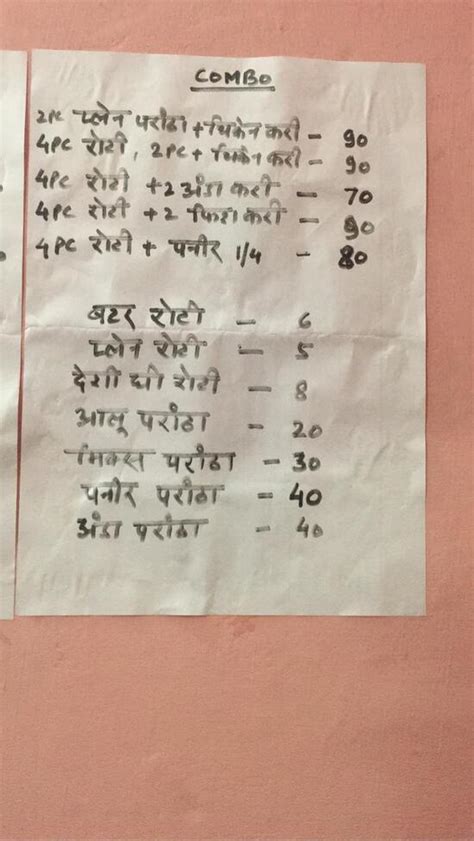 COMBO
2PC प्लेन परांठा + चिकेन करी - 90
4PC रोटी, 2PC + चिकेन करी - 90
4PC रोटी + 2 अंडा करी - 70
4PC रोटी + 2 फिश करी - 90
4PC रोटी + पनीर 1/4 - 80
बटर रोटी - 6
प्लेन रोटी - 5
देशी घी रोटी - 8
आलू परांठा - 20
मिक्स परांठा - 30
पनीर परांठा = 40
अंडा परांठा = 40